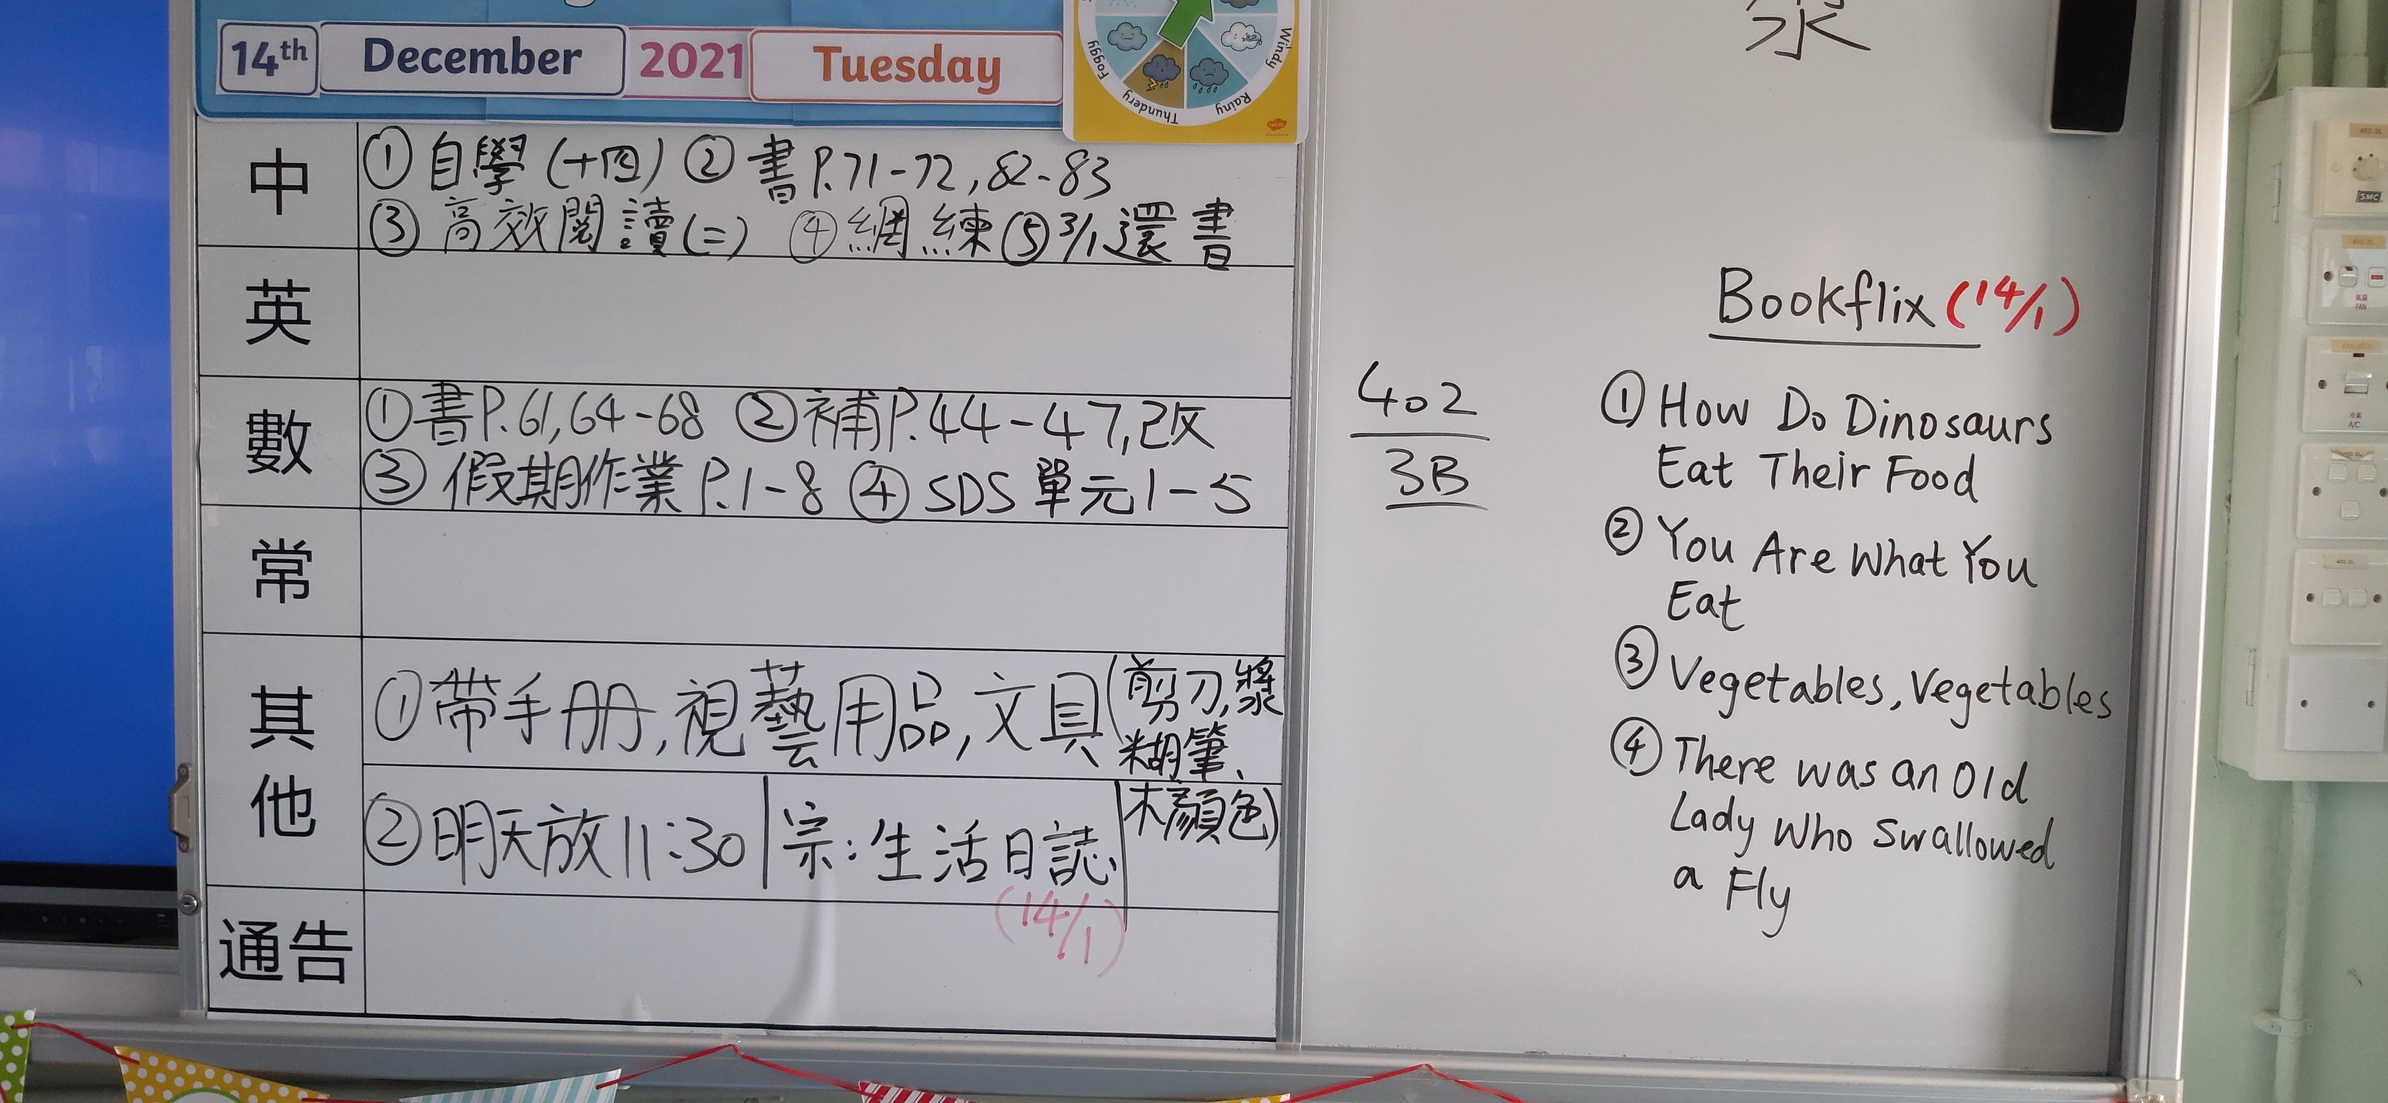 14th December 2021 Tuesday
Foggy
Thundery
Rainy
Windy
中
①自學(十四) ②書P.71-72,82-83
③高效閱讀(二) ④網練⑤3/1還書
英
數
①書P.61,64-68 ②補P.44-47,改
③假期作業P.1-8 ④SDS單元1-5
常
其他
①帶手册,視藝用品,文具(剪刀,漿
糊筆、
木顏色)
②明天放11:30|宗:生活日誌
(14/1)
通告
402
3B
Bookflix(14/1)
①How Do Dinosaurs
Eat Their Food
②You Are What You
Eat
③Vegetables, Vegetables
④There was an Old
Lady Who Swallowed
a Fly
SMC
FAN
A/C